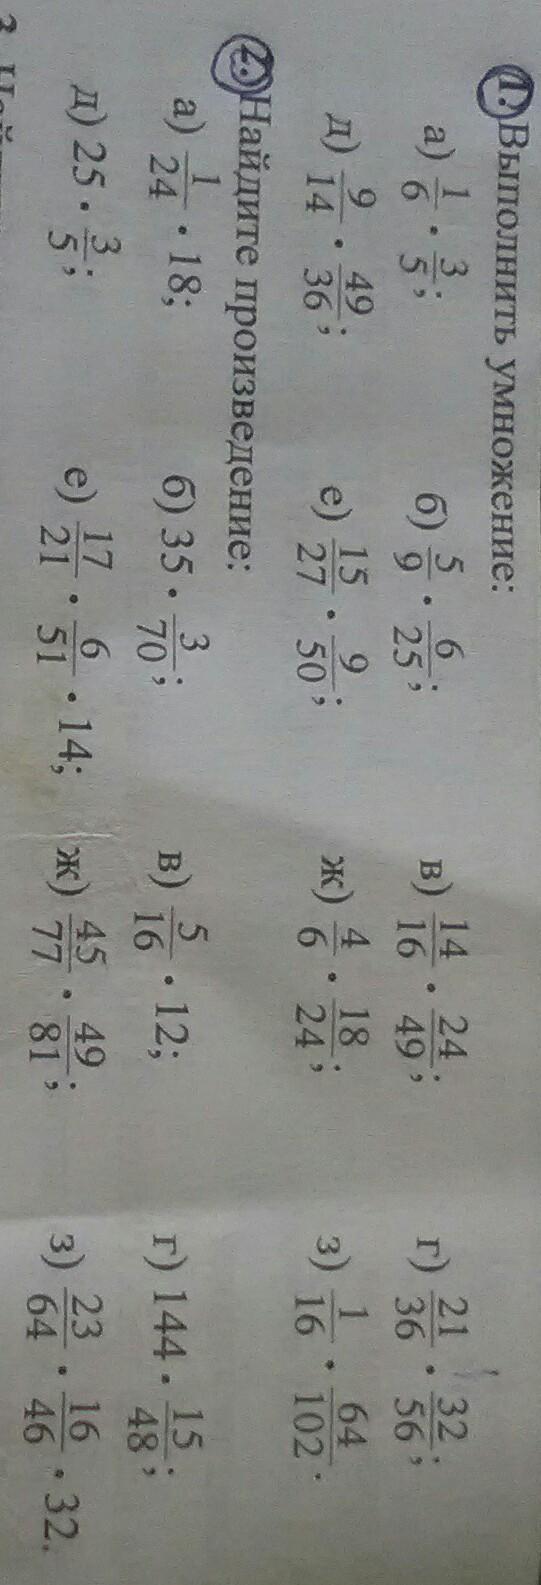 1. Выполнить умножение:
а) 1/6 · 3/5; б) 5/9 · 6/25; в) 14/16 · 24/49; г) 21/36 · 32/56;
д) 9/14 · 49/36; е) 15/27 · 9/50; ж) 4/6 · 18/24; з) 1/16 · 64/102.
2. Найдите произведение:
а) 1/24 · 18; б) 35 · 3/70; в) 5/16 · 12; г) 144 · 15/48;
д) 25 · 3/5; е) 17/21 · 6/51 · 14; ж) 45/77 · 49/81; з) 23/64 · 16/46 · 32.